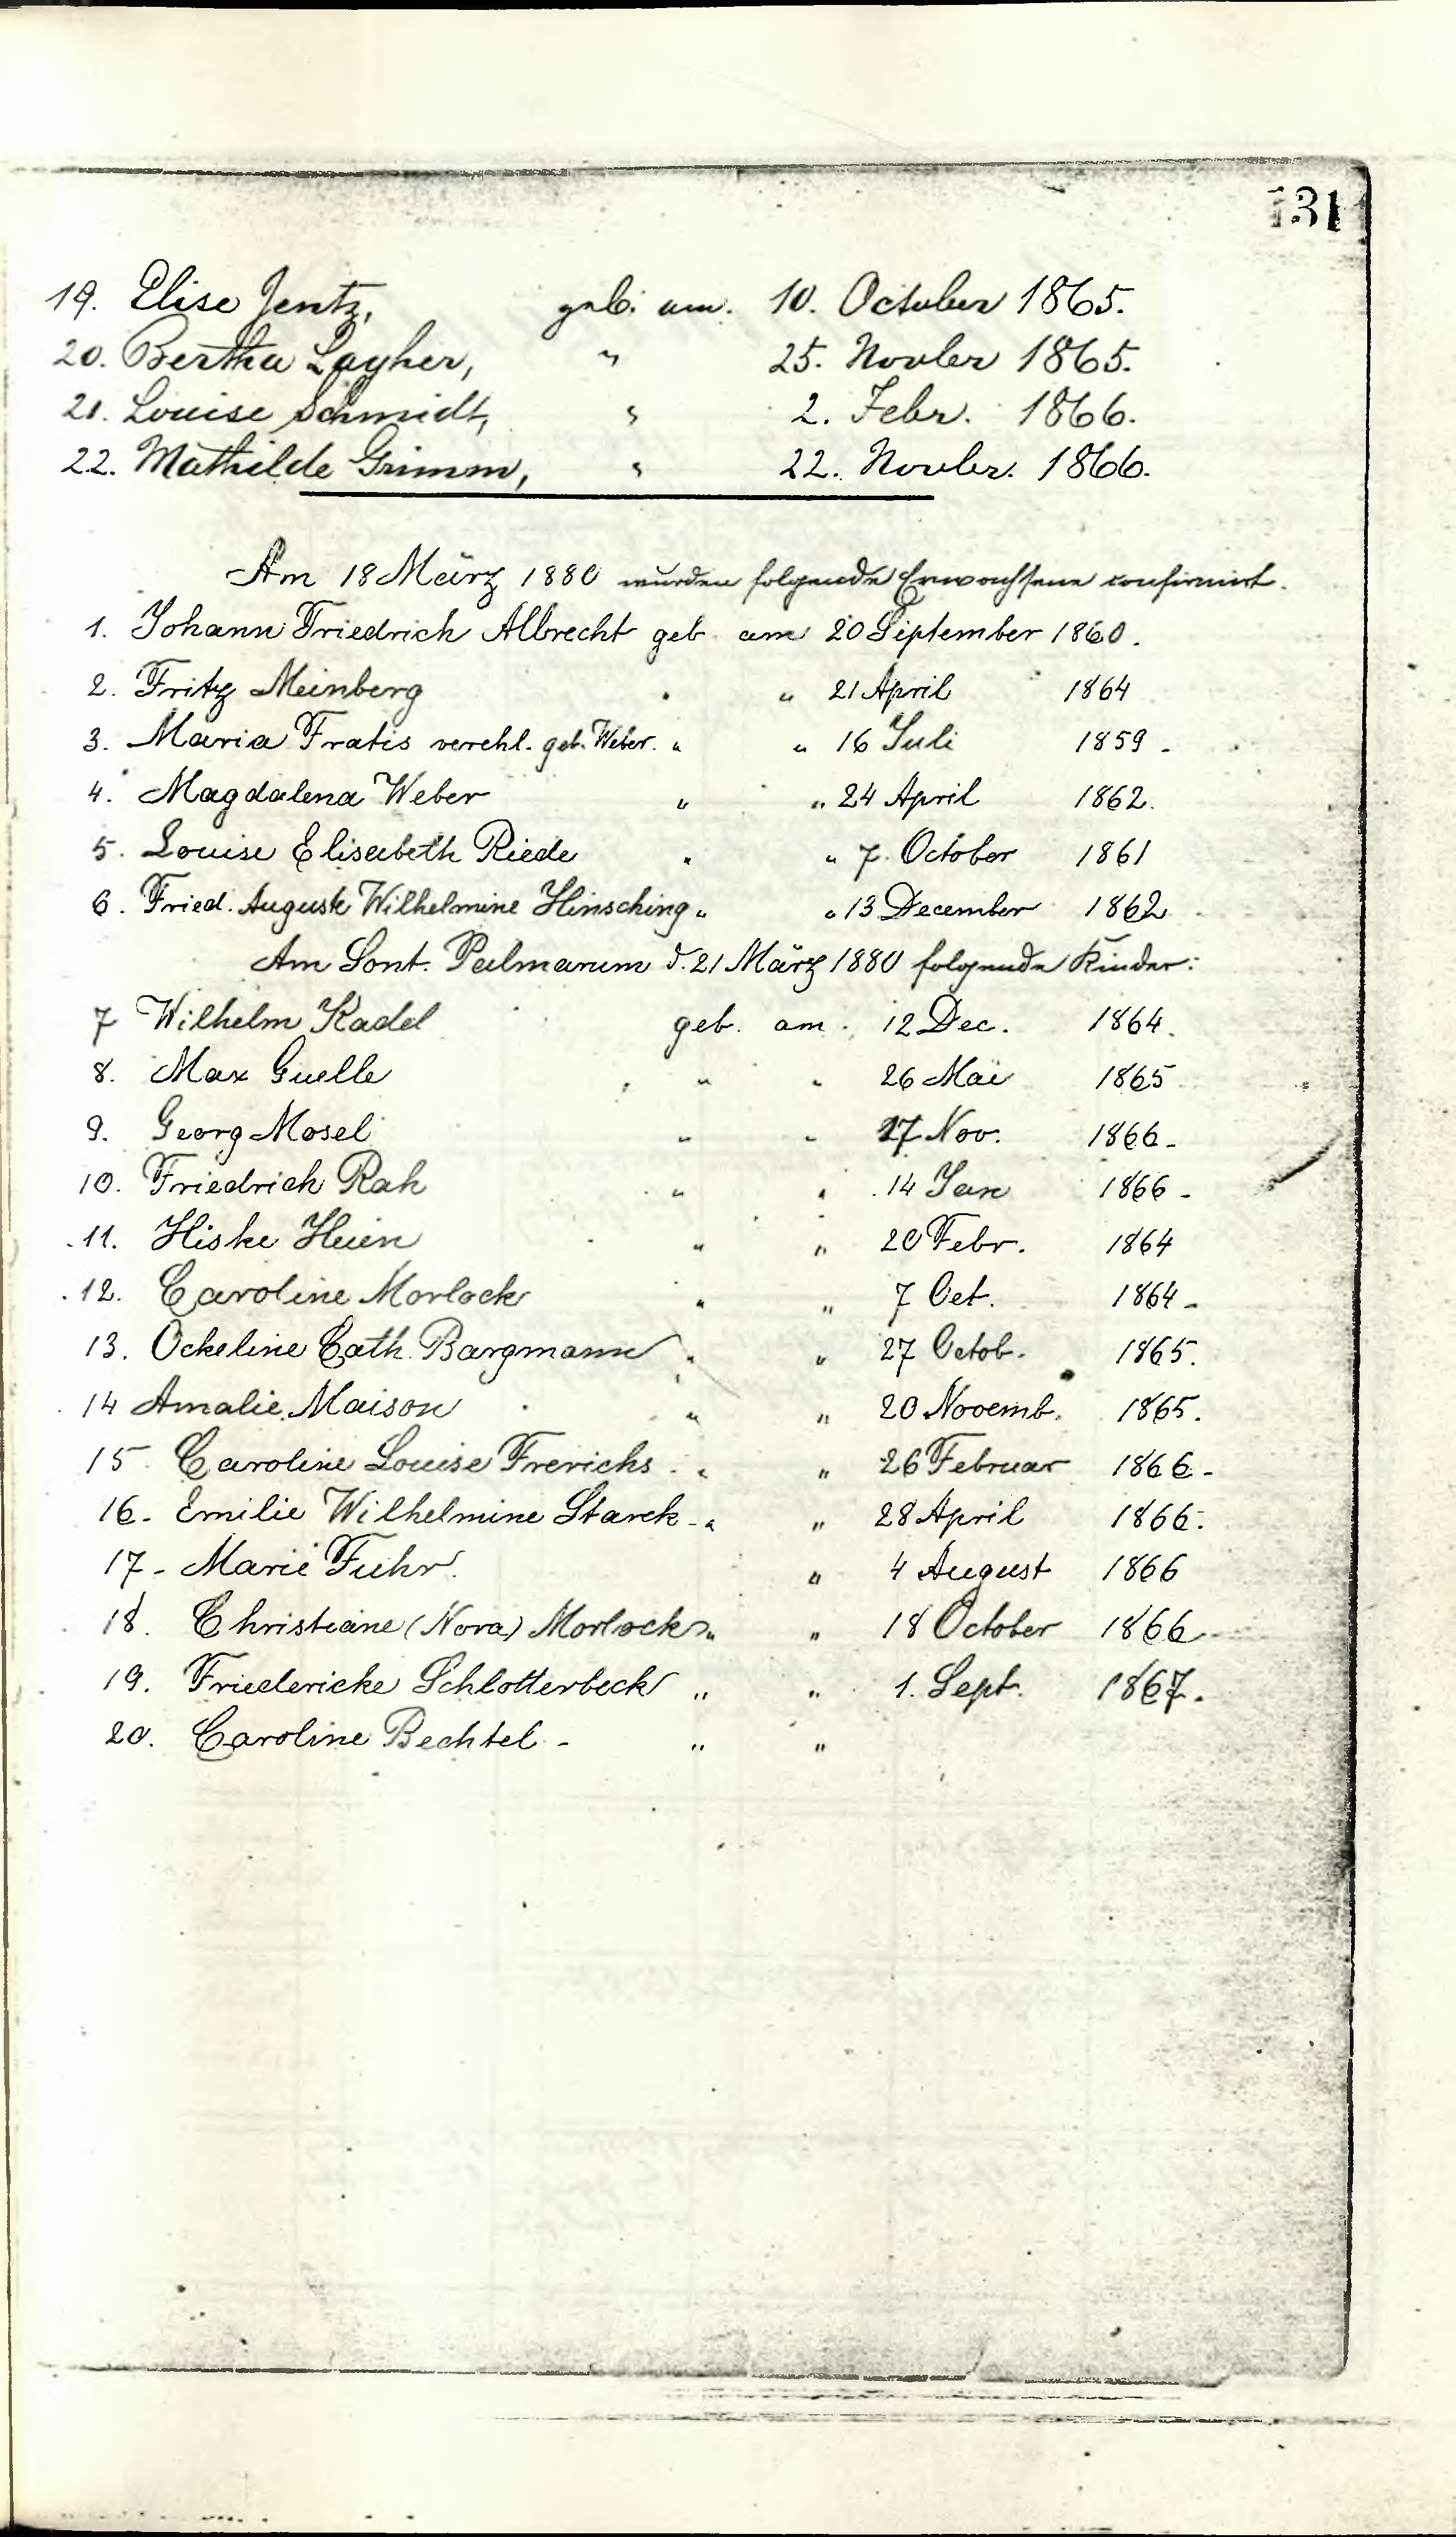 131
19. Elise Jentz, geb. am. 10. October 1865.
20. Bertha Layher, " 25. Novber 1865.
21. Louise Schmidt, " 2. Febr. 1866.
22. Mathilde Grimm, " 22. Novber. 1866.
Am 18 März 1880 wurden folgende Erwachsene confirmirt.
1. Johann Friedrich Albrecht geb. am 20 September 1860.
2. Fritz Meinberg " " 21 April 1864
3. Maria Fratis verehl. geb. Weber. " " 16 Juli 1859.
4. Magdalena Weber " " 24 April 1862.
5. Louise Elisabeth Riede " " 7. October 1861
6. Fried. Auguste Wilhelmine Hinsching " " 13 December 1862
Am Sont. Palmarum d. 21 März 1880 folgende Kinder:
7 Wilhelm Kadel geb. am. 12 Dec. 1864.
8. Max Guelle " " 26 Mai 1865
9. Georg Mosel " " 27 Nov. 1866-
10. Friedrich Rah " " 14 Jan 1866-
11. Hiske Huen " " 20 Febr. 1864
12. Caroline Morlock " " 7 Oct. 1864-
13. Ockeline Cath. Bargmann " " 27 Octob. 1865.
14 Amalie Maison " " 20 Novemb. 1865.
15 Caroline Louise Frerichs " " 26 Februar 1866-
16- Emilie Wilhelmine Starck - " " 28 April 1866.
17- Marie Fuhr. " 4 August 1866
18. Christiane (Nora) Morlock " " 18 October 1866
19. Friedericke Schlotterbeck " " 1. Sept. 1867.
20. Caroline Bechtel - " "